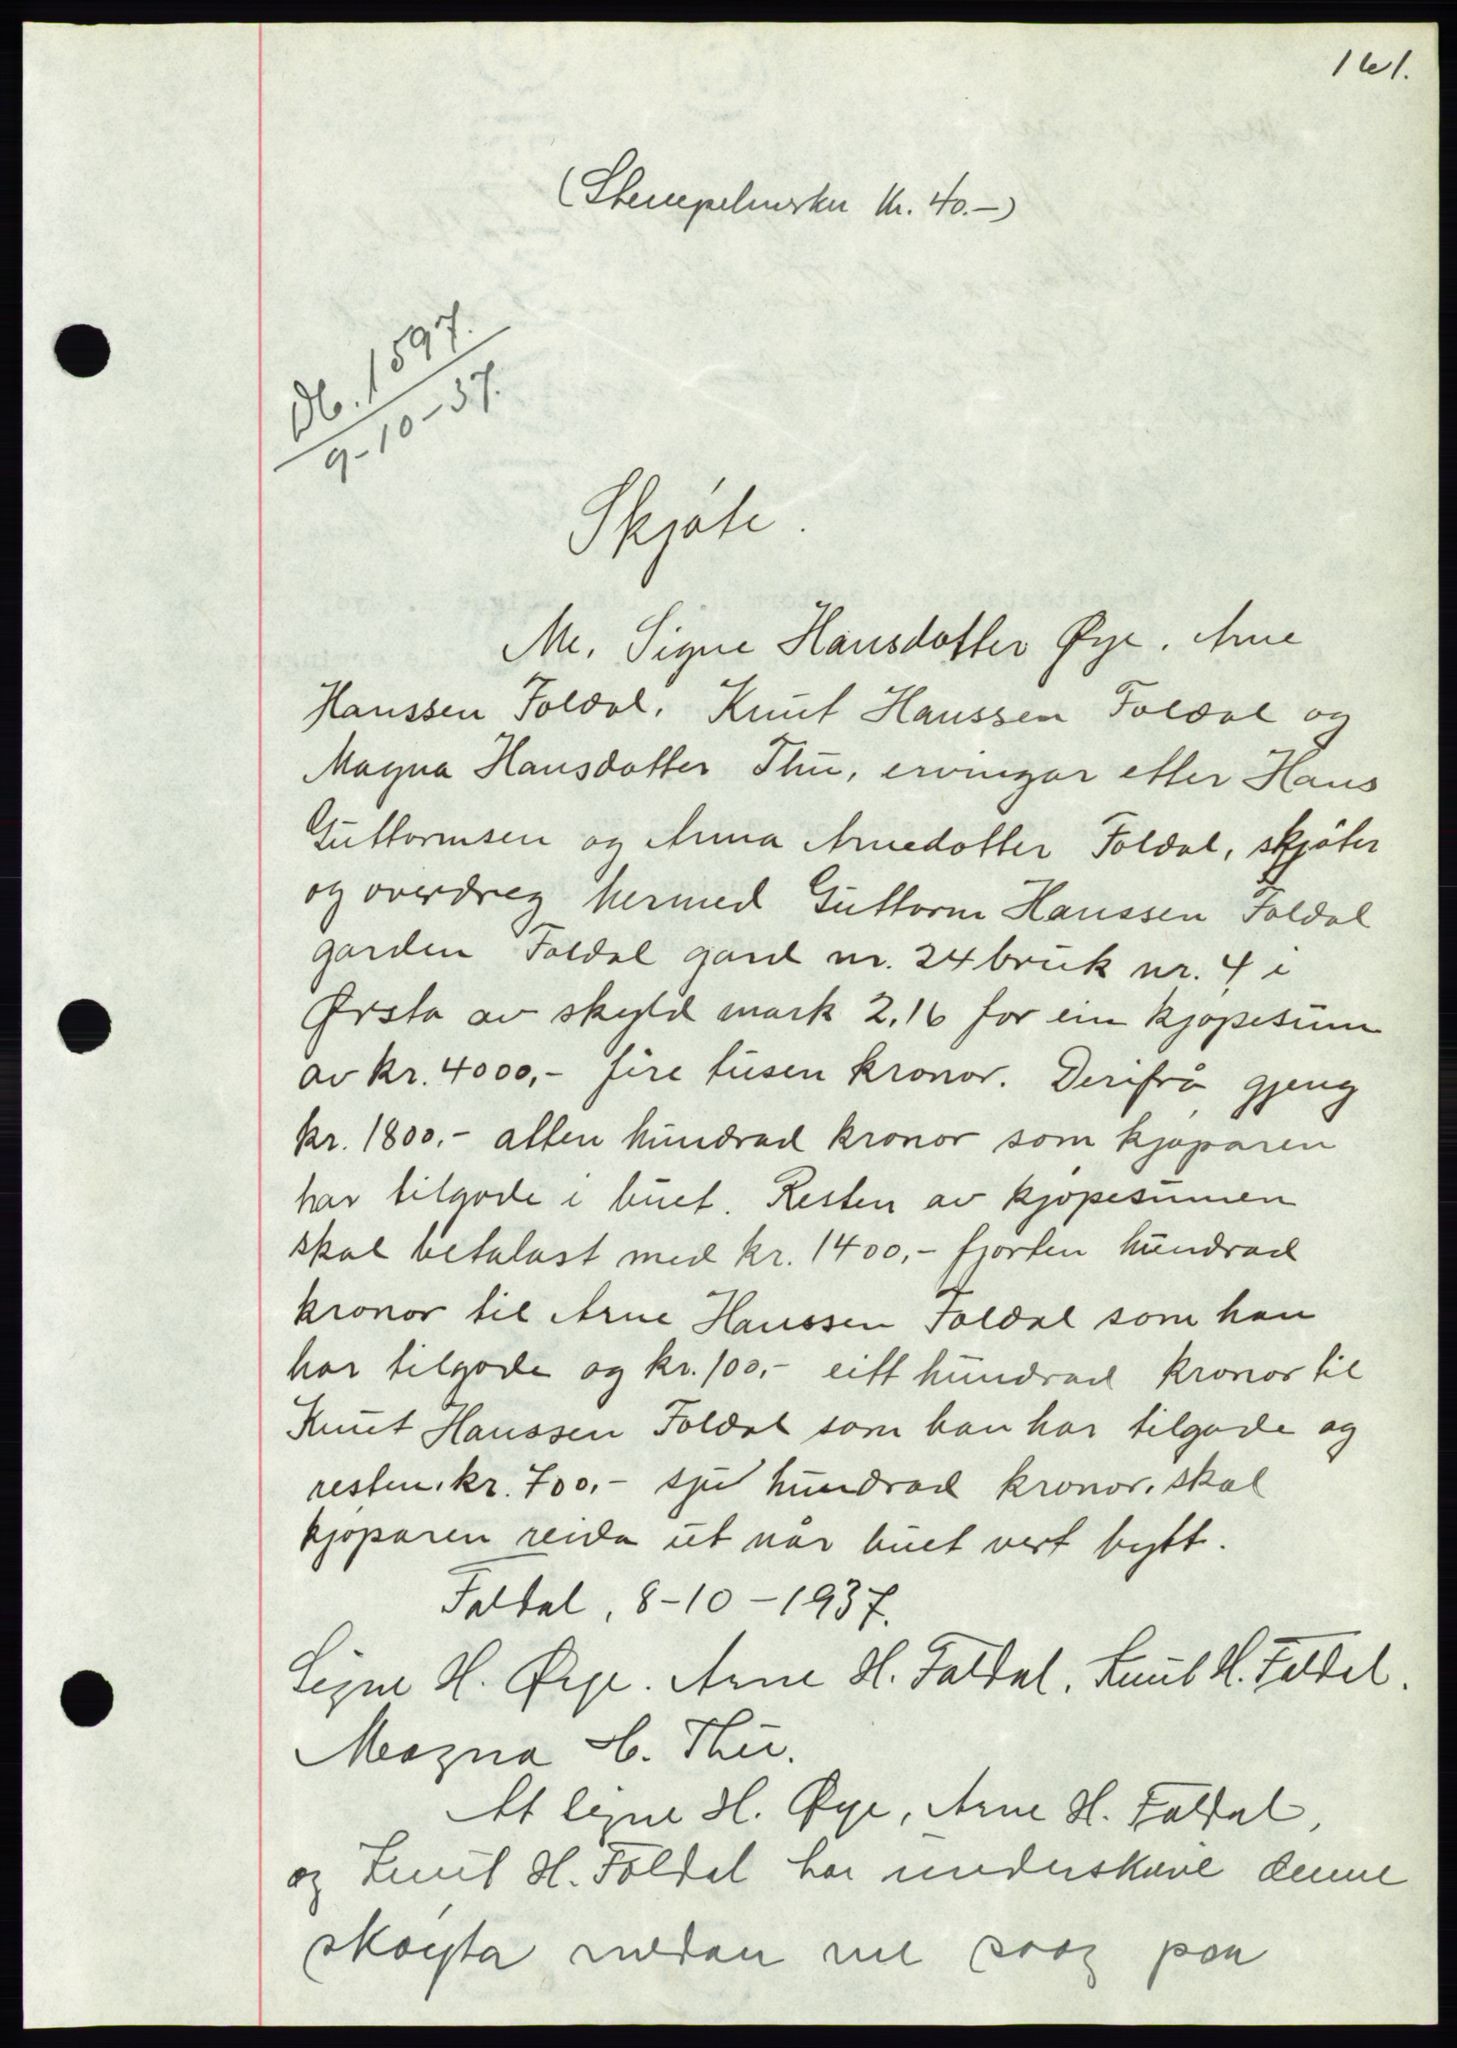 161.
(Stempelmerker kr. 40.-)
Db. 1597.
9-10-37.
Skjøte.
Me, Signe Hansdotter Øye, Arne
Hanssen Foldal, Knut Hanssen Foldal og
Magna Hansdotter Thu, ervingar etter Hans
Guttormsen og Anna Arnedotter Foldal, skjøter
og overdreg hermed Guttorm Hanssen Foldal
garden Foldal gard nr. 24 bruk nr. 4 i
Ørsta av skyld mark 2,16 for ein kjøpesum
av kr. 4000,- fire tusen kronor. Derifrå gjeng
kr. 1800,- atten hundrad kronor som kjøparen
har tilgode i buet. Resten av kjøpesumen
skal betalast med kr. 1400,- fjorten hundrad
kronor til Arne Hanssen Foldal som han
har tilgode og kr. 100,- eitt hundrad kronor til
Knut Hanssen Foldal som han har tilgode og
resten, kr. 700,- sju hundrad kronor, skal
kjøparen reida ut når buet vert bytt.
Foldal, 8-10-1937.
Signe H. Øye. Arne H. Foldal. Knut H. Foldal.
Magna H. Thu.
At Signe H. Øye, Arne H. Foldal,
og Knut H. Foldal har underskrive denne
skøyta medan me saag paa